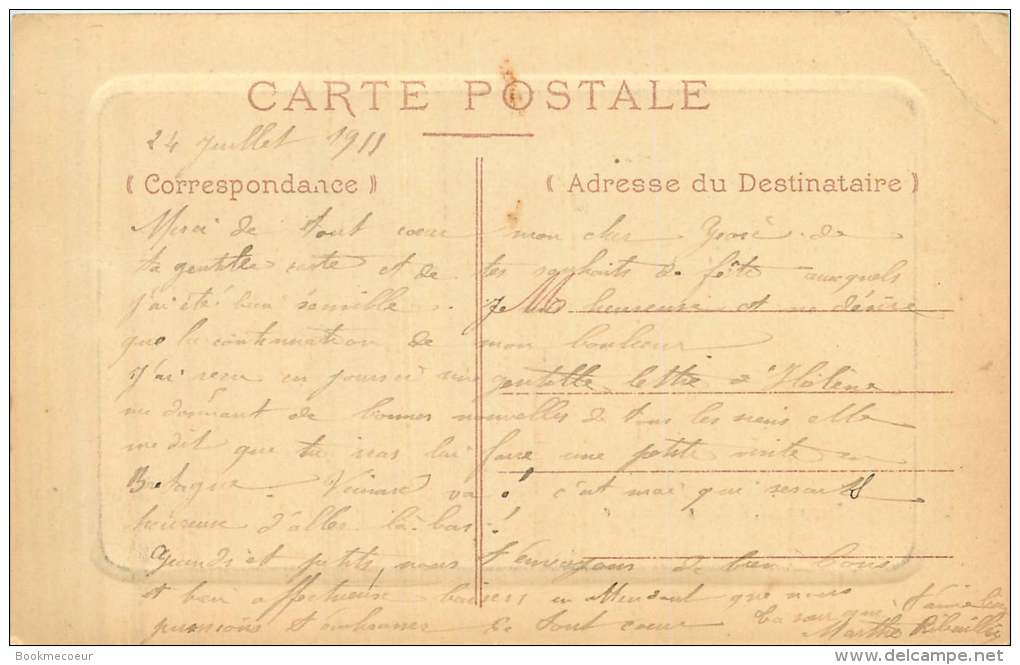 CARTE POSTALE
24 Juillet 1911
Correspondance
Adresse du Destinataire
Merci de tout coeur mon cher de
ta gentille carte et de tes souhaits de fête auxquels
j'ai été bien sensible. Je suis heureuse et ne désire
que la continuation de mon bonheur
J'ai reçu en journée une gentille lettre d'Hélène
me donnant de bonnes nouvelles de tous les siens elle
me dit que tu iras lui faire une petite visite en
Bretagne. Veinard va ! c'est moi qui serais
heureuse d'aller là-bas !
Grands et petits nous t'envoyons de bien bons
et bien affectueux baisers en attendant que nous
puissions t'embrasser de tout coeur Ta soeur qui t'aime bien
Marthe
Bookmecoeur
www.delcampe.net